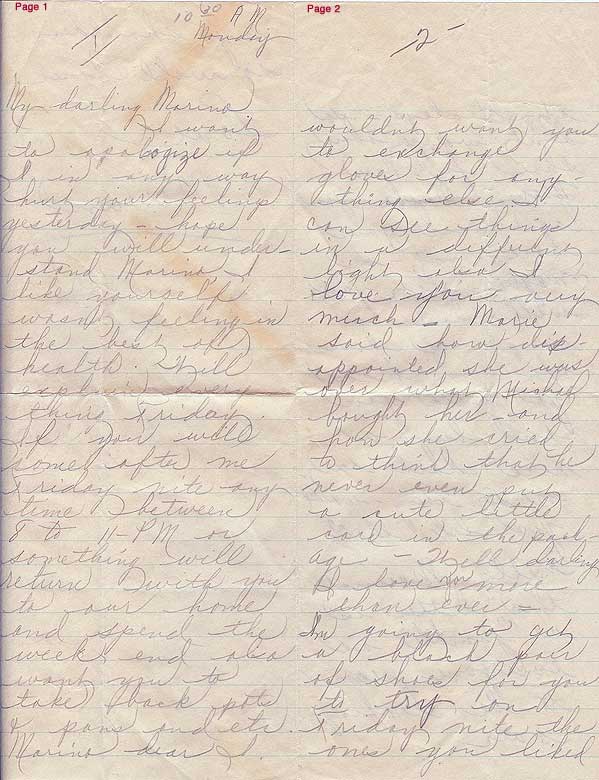 Page 1
10 30 A M
Monday
1
My darling Marino
I want
to apologize if
I in any way
hurt your feeling
yesterday - hope
you will under-
stand Marino, I
like yourself
wasn't feeling in
the best of
health. Will
explain every
thing Friday.
If you will
come after me
Friday nite any
time between
8 to 11-PM or
something will
return with you
to our home
and spend the
week end also
want you to
take back pots
& pans and etc.
Marino dear I
Page 2
2-
wouldn't want you
to exchange
gloves for any-
thing else. I
can see things
in a diffrent
light also I
love you very
much - Marie
said how dis-
appointed she was
over what
bought her - and
how she cried
to think that he
never even put
a cute little
card in the pack-
age - Well darling
I love you more
than ever =
Im going to get
a black pair
of shoes for you
to try on
Friday nite the
ones you liked